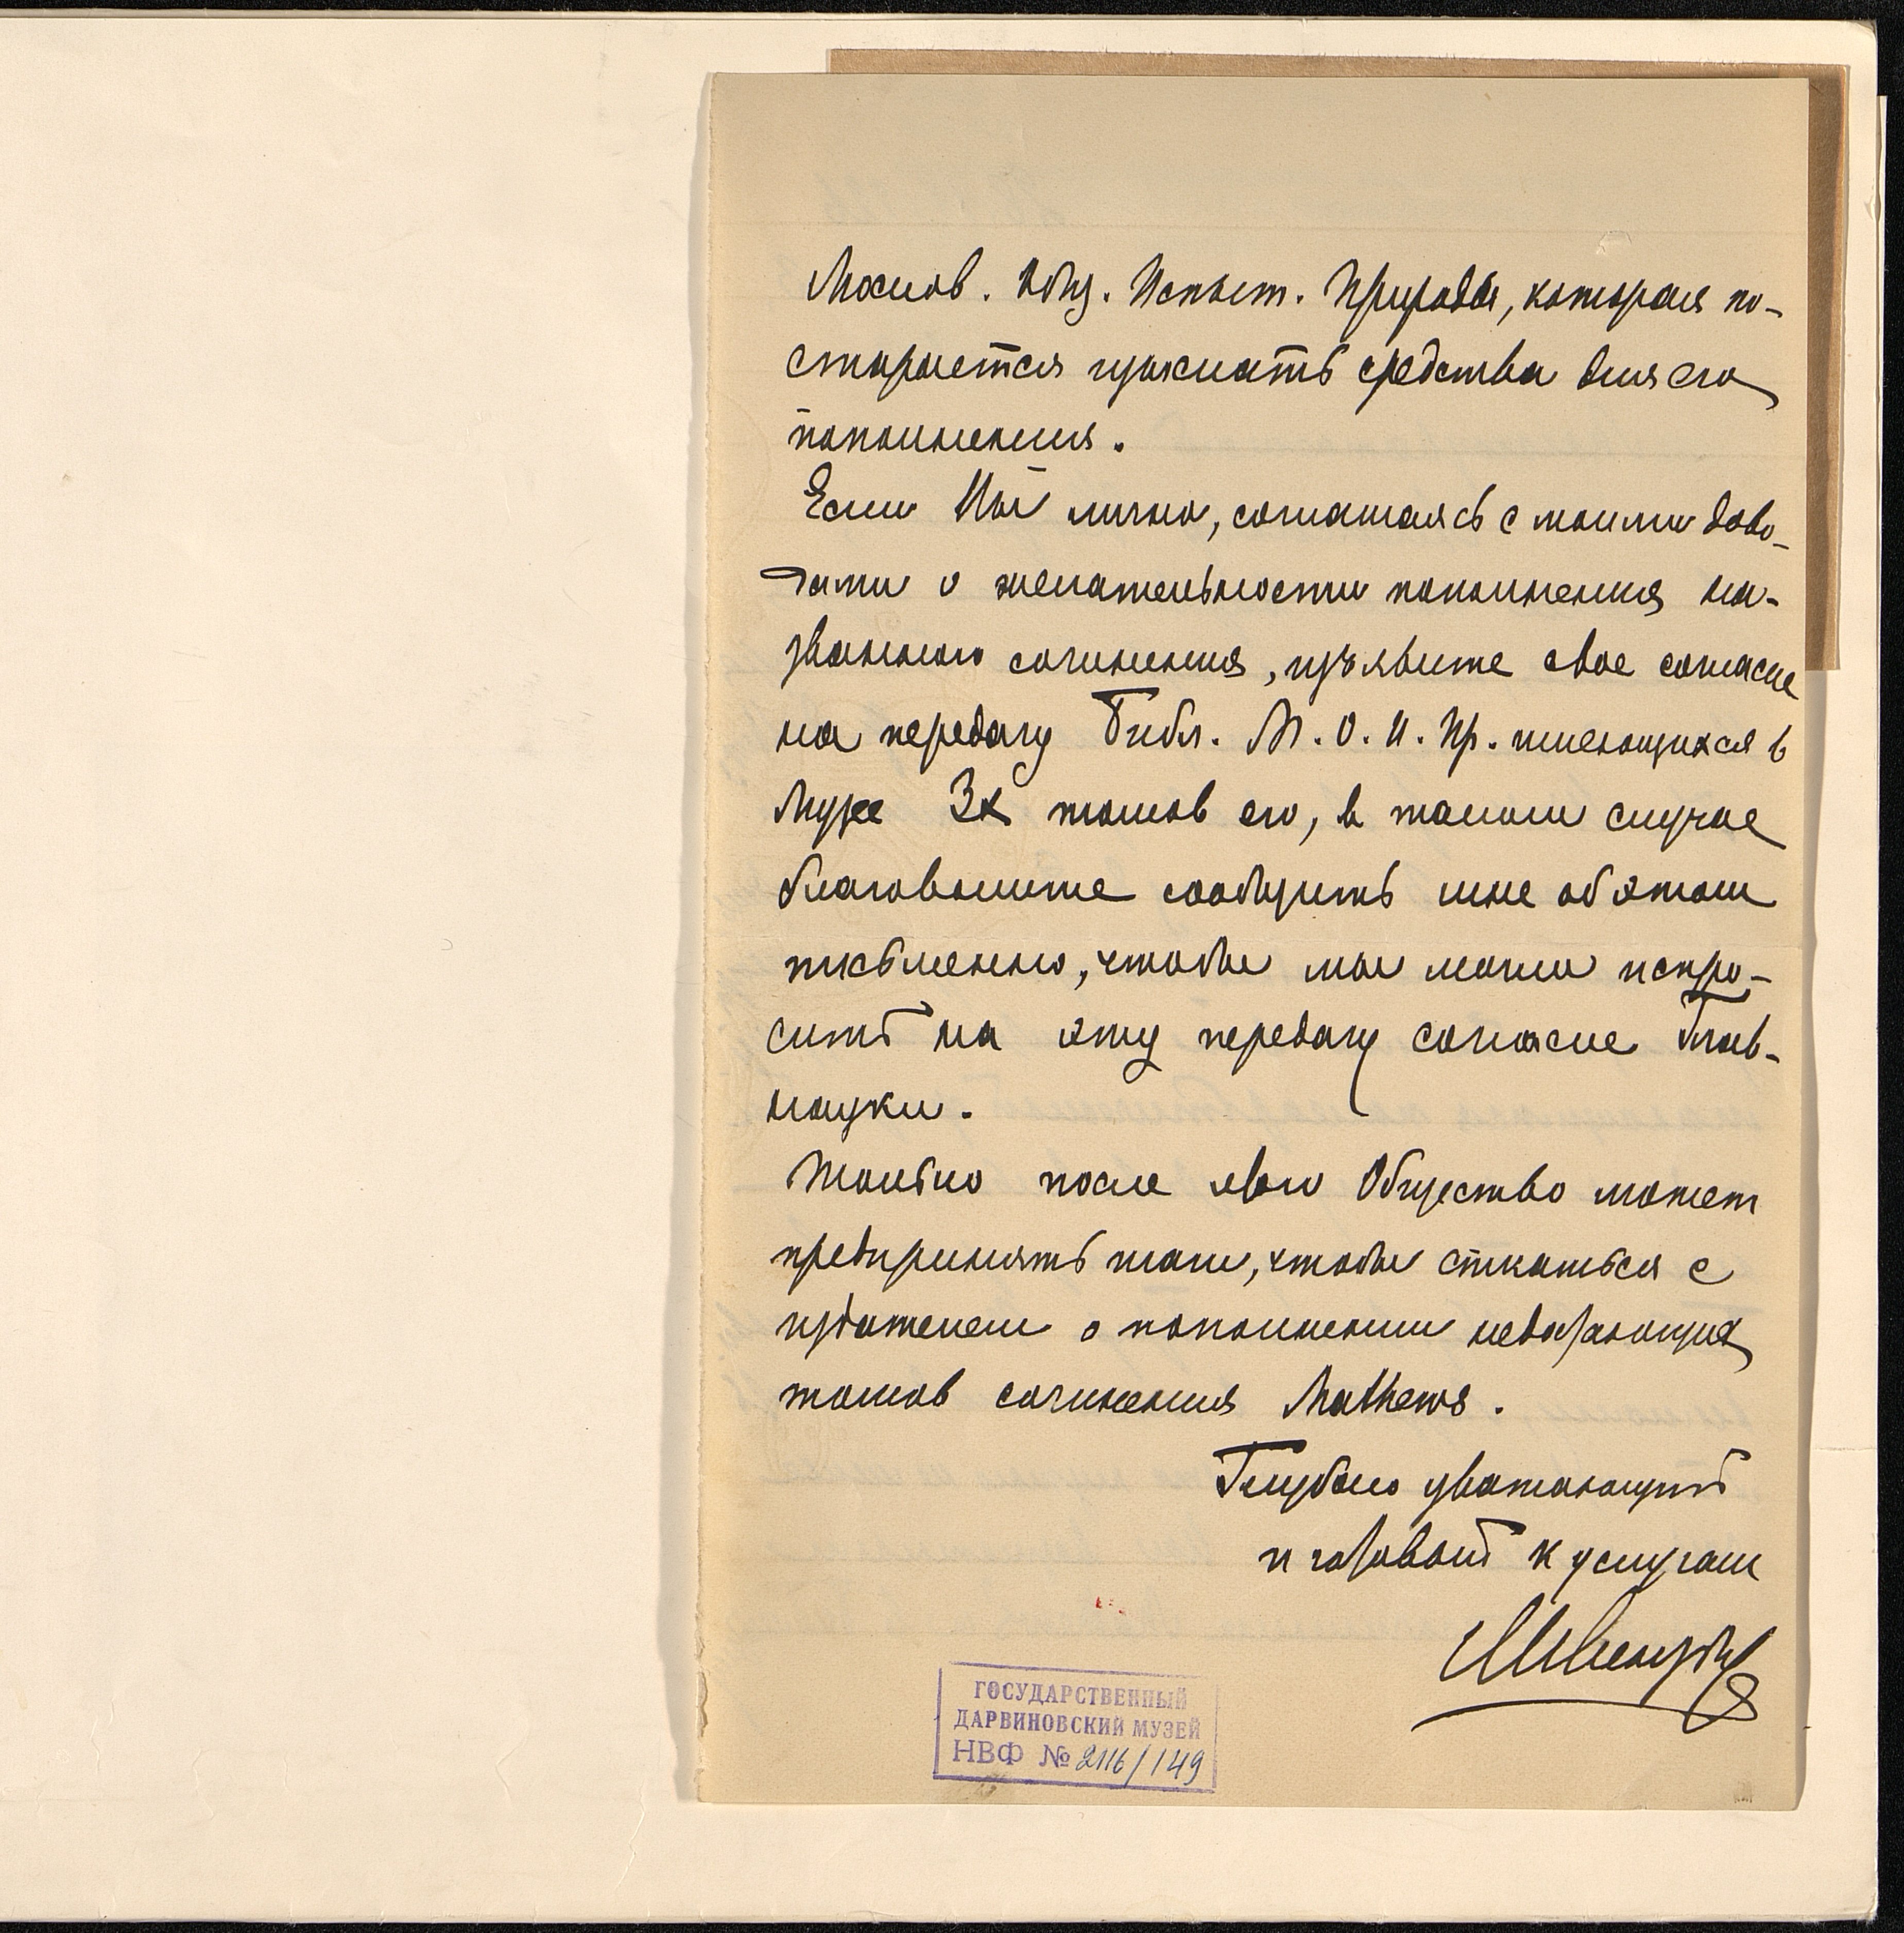 Москов. Общ. Испыт. Природы, которая по-
старается изыскать средства для его
пополнения.
Если Вы лично, соглашаясь с моими дово-
дами о желательности пополнения на-
званного сочинения, изъявите свое согласие
на передачу Библ. М. О. И. Пр. имеющихся в
Музее 3х томов его, в таком случае
благоволите сообщить мне об этом
письменно, чтобы мы могли испро-
сить на эту передачу согласие Глав-
науки.
Только после этого Общество может
предпринять шаги, чтобы списаться с
издателем о пополнении недостающих
томов сочинения Mathews.
Глубоко уважающий
и готовый к услугам
ГОСУДАРСТВЕННЫЙ
ДАРВИНОВСКИЙ МУЗЕЙ
НВФ № 2116/149